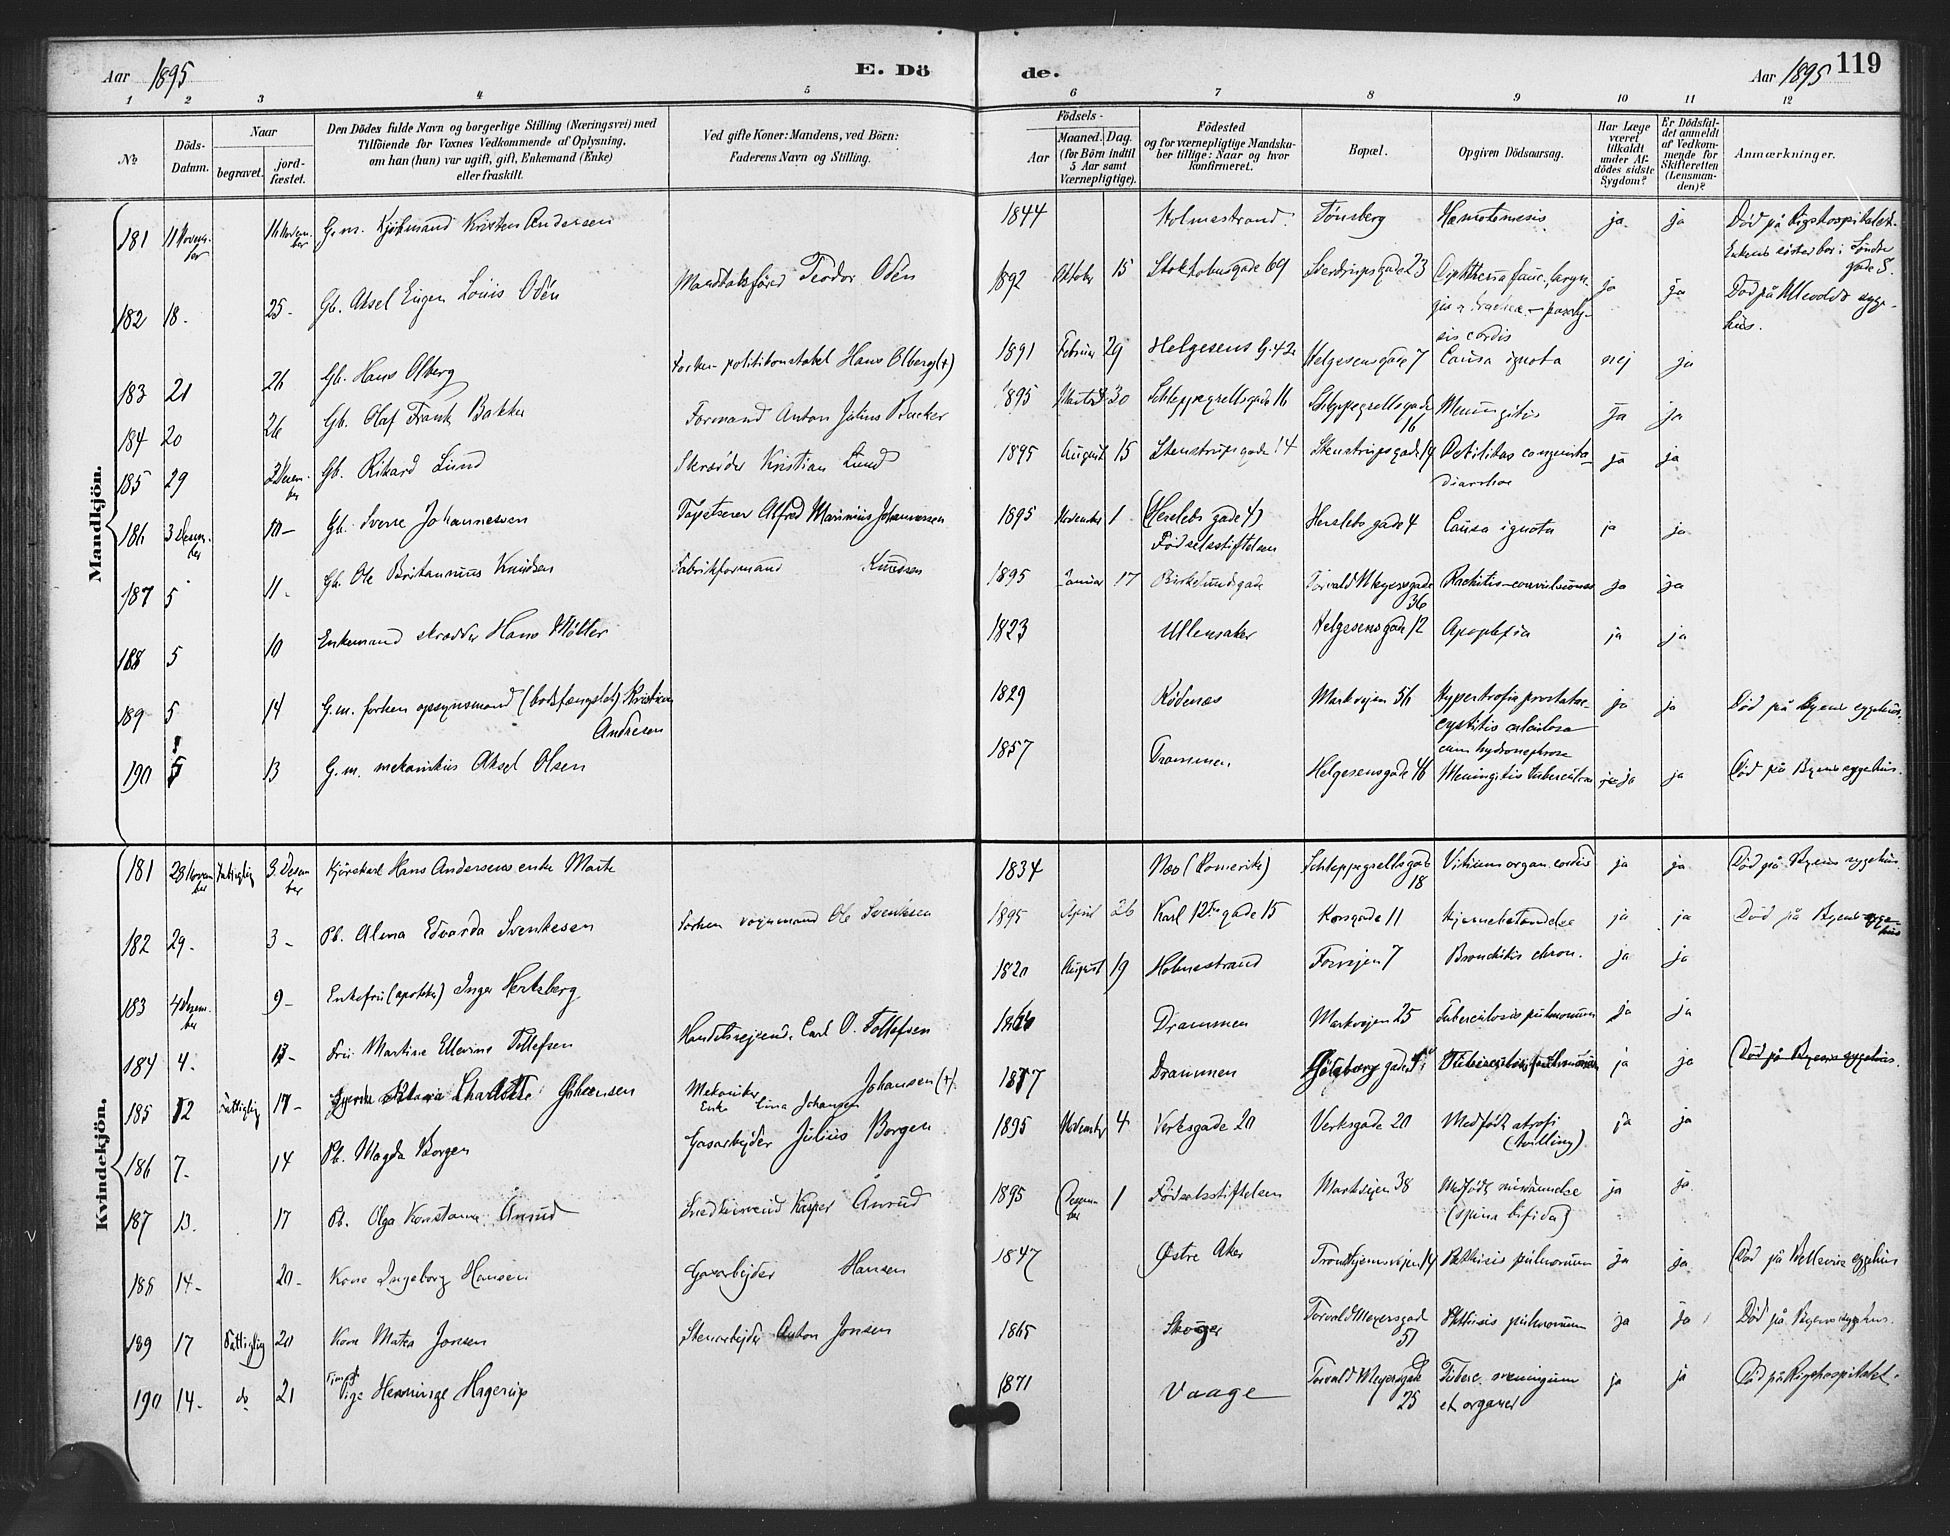 Aar 1895 E. Dö de. Aar 1895 119
1 2 3 4 5 6 7 8 9 10 11 12
№
Döds-
Datum.
Naar
begravet. jord-
fæstet.
Den Dödes fulde Navn og borgerlige Stilling (Næringsvei) med
Tilföiende for Voxnes Vedkommende af Oplysning,
om han (hun) var ugift, gift, Enkemand (Enke)
eller fraskilt.
Ved gifte Koner: Mandens, ved Börn:
Faderens Navn og Stilling.
Födsels-
Aar Maaned. Dag.
(for Börn indtil
5 Aar samt
Værnepligtige).
Födested
og for værnepligtige Mandska-
ber tillige: Naar og hvor
konfirmeret.
Bopæl.
Opgiven Dödsaarsag.
Har Læge
været
tilkaldt
under Af-
dödes sidste
Sygdom?
Er Dödsfal-
det anmeldt
af Vedkom-
mende for
Skifteretten
(Lensman-
den)?
Anmærkninger.
Mandkjön.
181 11 Novem-
ber 16 Novem-
ber G.m. Kjøbmand Kristen Andersen 1844 Holmestrand. Tønsberg Hæmatemesis. ja. ja Død på Rigshospitalet.
Enkens søster bor i Søndre
gade 5.
182 18. 25- Gb. Aksel Eugen Louis Odén Teodor Odén 1892 Oktober 15 Stokholmsgade 69 Sverdrupsgade 23 Diphtheria fauc., laryn-
gis & tracheæ - paraly-
sis cordis ja ja Død på Ullevolds syge-
hus.
183 21 26 Gb. Hans Olberg Forhen politikonstabel Hans Olberg (+) 1891 Februar 29 Helgesens G. 42 Helgesensgade 7 Causa ignota nej ja
184 20 26 Gb. Olaf Frank Bakke Formand Anton Julius Backer 1895 30 Schleppegrellsgade 16 Schleppegrellsgade
16 Meningitis ja ja
185 29 3 Desem-
ber Gb. Rikard Lund Skræder Kristian Lund 1895 August 15 Stenstrupsgade 14 Stenstrupsgade 14 Debilitas congenita-
diarrhoe ja ja
186 3 Desem-
ber 10- Gb. Sverre Johannessen Tapetserer Alfred Marinius Johannessen 1895 November 1 (Herslebs gade 4)
Fødselsstiftelsen Herslebs gade 4 Causa ignota ja ja
187 5 11- Gb. Ole Britannius Knudsen Fabrikformand Knudsen 1895 Januar 17 Birkelundsgade Torvald Meyersgade
36 Rachitis-convulsiones ja ja
188 5 10 Enkemand skrædder Hans Møller 1823 Ullensaker Helgesensgade 12 Apoplexia ja ja
189 5 14 G.m. forhen opsynsmand (bodsfængslet) Kristian
Andresen 1829 Rødenæs Markvejen 56 Hypertrofia prostatae-
cystitis calculosa
cum hydronephrose ja ja Død på Byens sygehus.
190 5 13 G.m. mekanikus Aksel Olsen 1857 Drammen. Helgesensgade 46 Meningitis tuberculosa ja ja Død på Byens sygehus.
Kvindekjön.
181 28 Novem-
ber Fattiglig 3 Desem-
ber Kjørekarl Hans Andersens enke Marte 1834 Næs (Romerike) Schleppegrellsgade
18 Vitium organ. cordis ja ja. Død på Byens sygehus.
182 29. 3- Pb. Alma Edvarda Svenkesen Forhen vognmand Ole Svenkesen 1895 April 26 Karl 12tes gade 15 Korsgade 11 Hjernebetændelse ja ja Død på Byens syge-
hus
183 4 Desem-
ber 9- Enkefru (apoteker) Inger Hertzberg 1820 August 19 Holmestrand Fossvejen 7 Bronchitis chron. ja ja
184 4. 13- Fru Martine Ellevine Tollefsen Handelsrejsend. Carl O. Tollefsen Drammen Markvejen 25 Tuberculosis pulmonum ja ja
185 12 Fattiglig 17- Charlotte Johansen Mekaniker Johansen (+).
Enke Lina Johansen 1877 Drammen Gøteborg gade Tuberculosis pulmonum ja ja Død på Byens sygehus.
186 7- 14 Pb. Magda Borgen Gasarbejder Julius Borgen 1895 November 4 Verksgade 20 Verksgade 20 Medfødt atrofi
(tvilling). ja ja
187 13. 17 Pb. Olga Konstance Ånrud Snedkersvend Kasper Ånrud 1895 Desem-
ber 1 Fødselsstiftelsen Markvejen 38 Medfødt misdannelse
(spina bifida) ja ja
188 14- 20- Kone Ingeborg Hansen Gasarbejder Hansen 1847 Østre Aker Trondhjemsvejen 14 Phthisis pulmonum ja ja. Død på sygehus
189 17 Fattiglig 20 Kone Mathea Jonsen Stenarbejder Anton Jonsen 1865 Skoger Torvald Meyersgad
57 Phthisis pulmonum ja ja Død på Byens sygehus.
190 14- do 21 Pige Henninge Hagerup 1871 Vaage Torvald Meyersgade
25 Tuberc. meningum
et organer ja ja Død på Rigshospitalet.